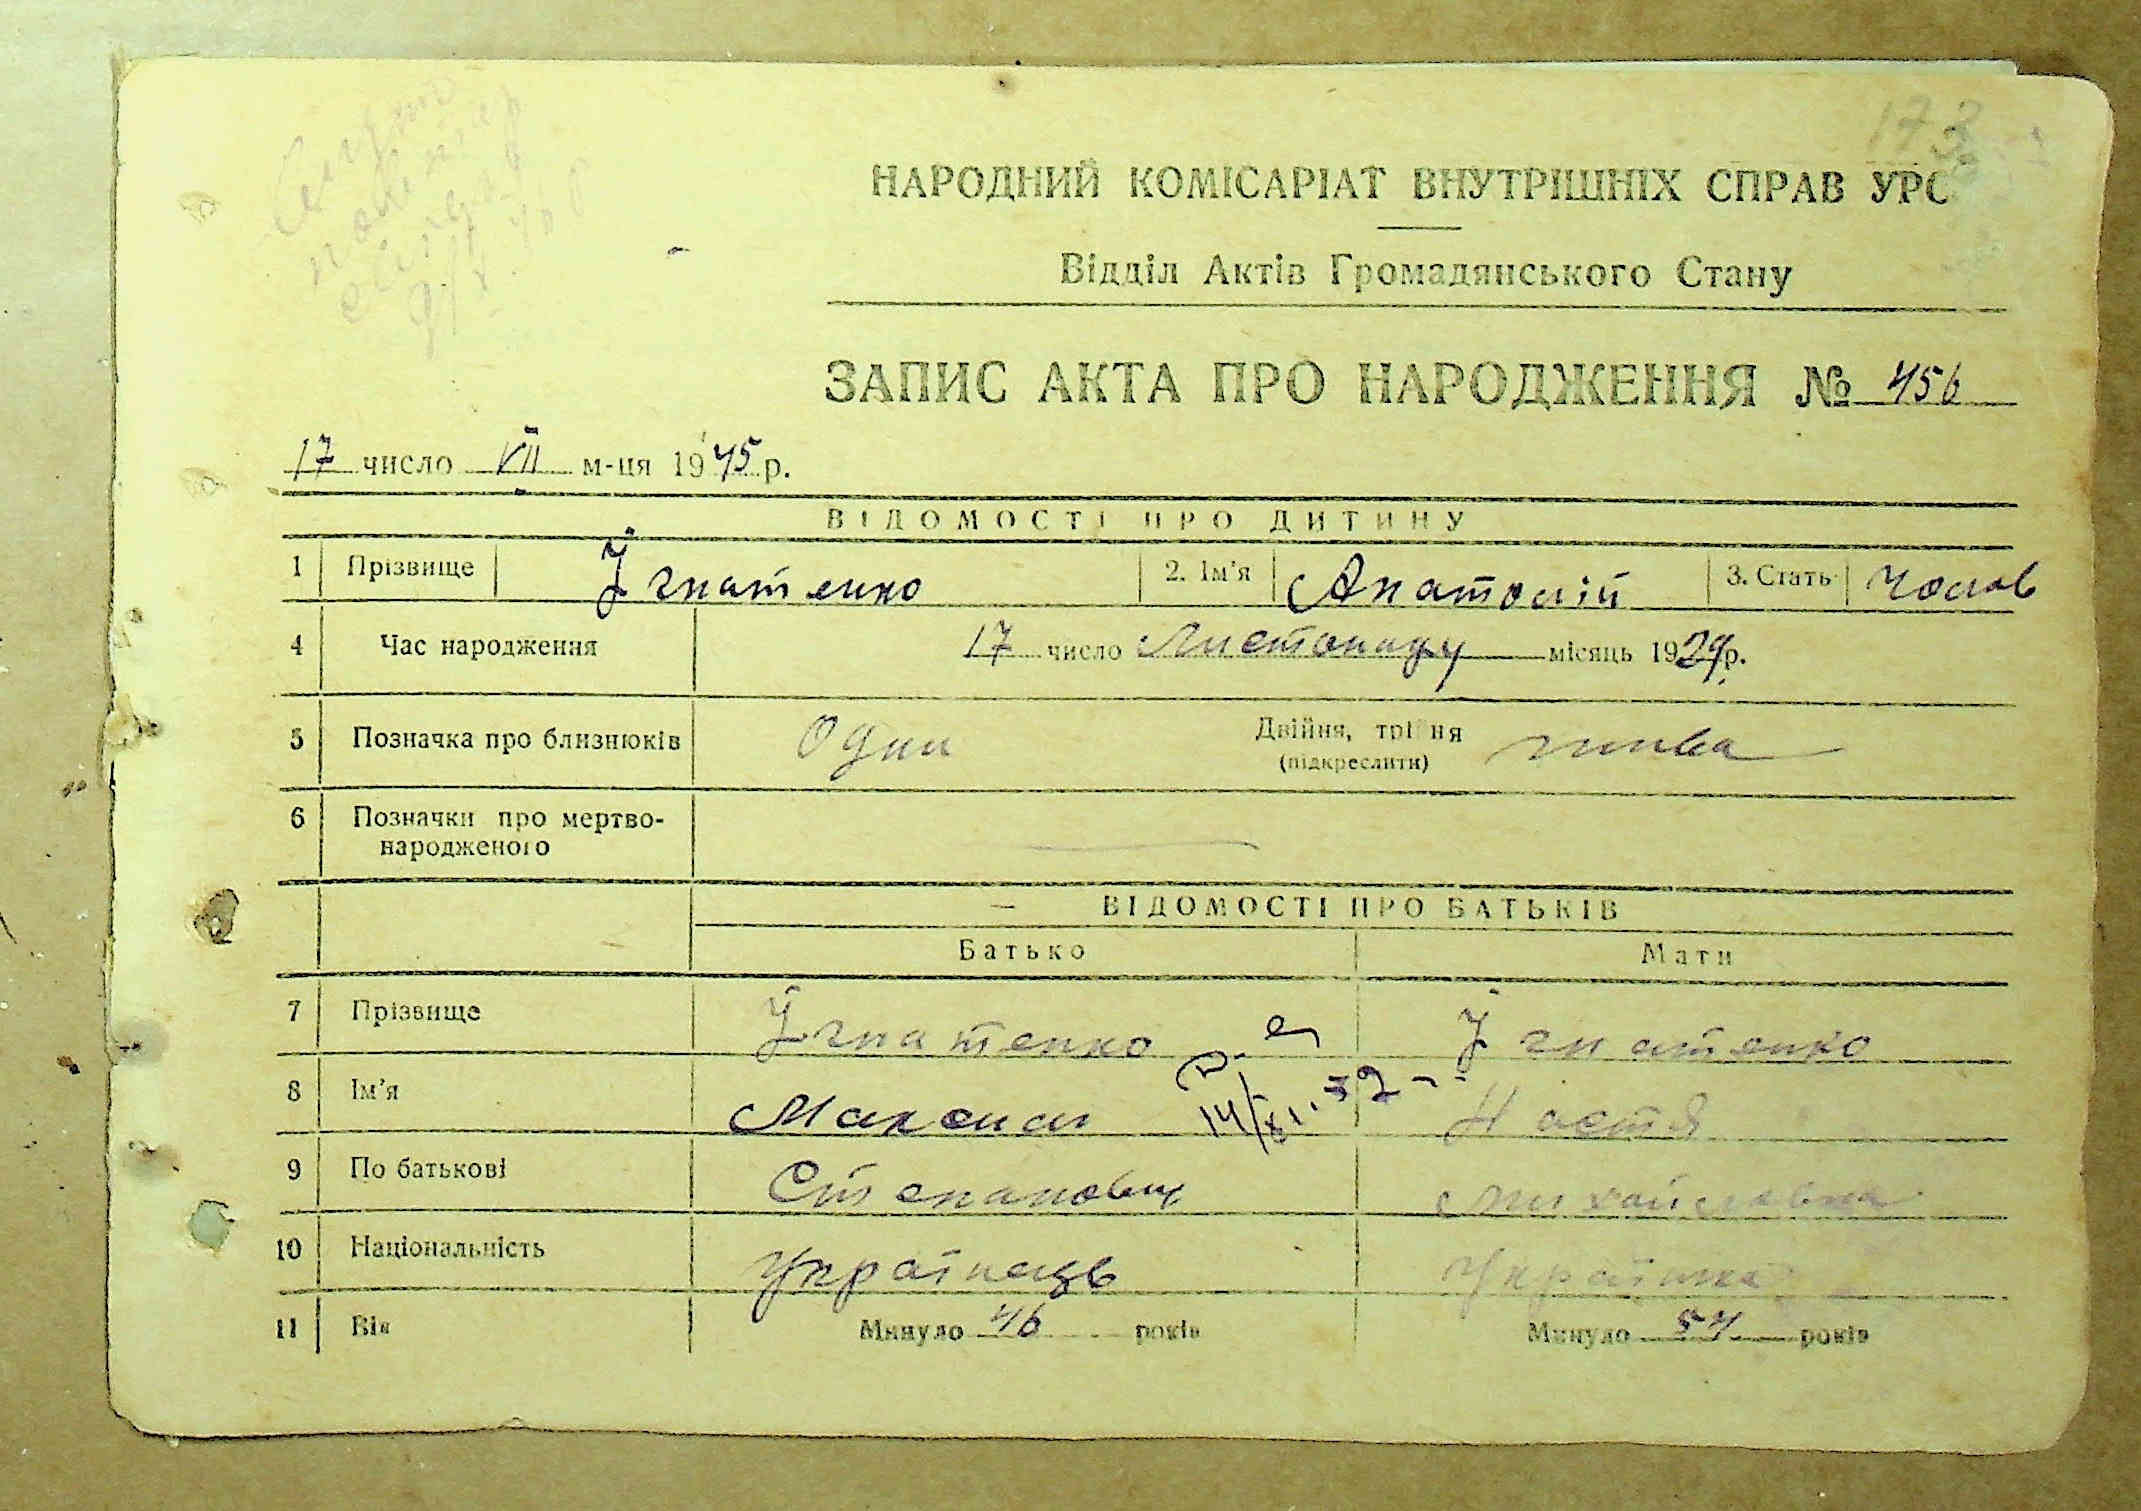 173
НАРОДНИЙ КОМІСАРІАТ ВНУТРІШНІХ СПРАВ УРС
Відділ Актів Громадянського Стану
ЗАПИС АКТА ПРО НАРОДЖЕННЯ № 456
17 число VII м-ця 1945 р.
ВІДОМОСТІ ПРО ДИТИНУ
1 Прізвище Ігнатенко 2. Ім'я Анатолій 3. Стать чолов
4 Час народження 17 число Листопаду місяць 1929 р.
5 Позначка про близнюків Один Двійня, трійня
(підкреслити)
6 Позначки про мертво-
народженого
ВІДОМОСТІ ПРО БАТЬКІВ
Батько Мати
7 Прізвище Ігнатенко Ігнатенко
8 Ім'я Максим Настя
9 По батькові Степанович Михайловна
10 Національність Українець Українка
11 Вік Минуло 46 років Минуло 54 років